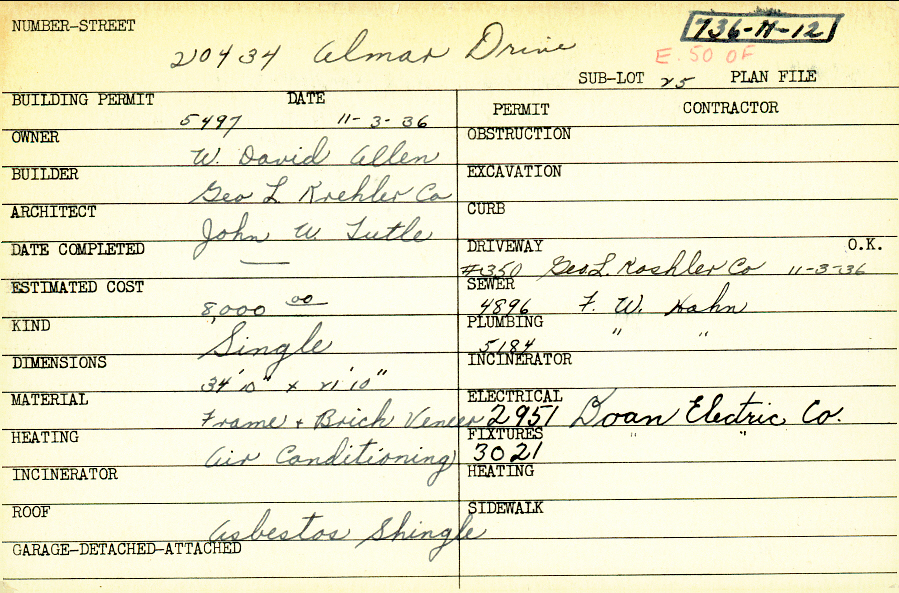 NUMBER-STREET
20434 Almar Drive
736-H-12
E. 50 OF
SUB-LOT 25 PLAN FILE
BUILDING PERMIT DATE
5497 11-3-36
OWNER
W. David Allen
BUILDER
Geo L. Koehler Co
ARCHITECT
John W. Tutle
DATE COMPLETED
—
ESTIMATED COST
8,000 00
KIND
Single
DIMENSIONS
34' 10" x 21' 10"
MATERIAL
Frame + Brick Veneer
HEATING
Air Conditioning
INCINERATOR
ROOF
Asbestos Shingle
GARAGE-DETACHED-ATTACHED
PERMIT CONTRACTOR
OBSTRUCTION
EXCAVATION
CURB
DRIVEWAY O.K.
#350 Geo. L. Koehler Co 11-3-36
SEWER
4896 F. W. Hahn
PLUMBING
5184 " "
INCINERATOR
ELECTRICAL
2951 Doan Electric Co.
FIXTURES " "
3021
HEATING
SIDEWALK